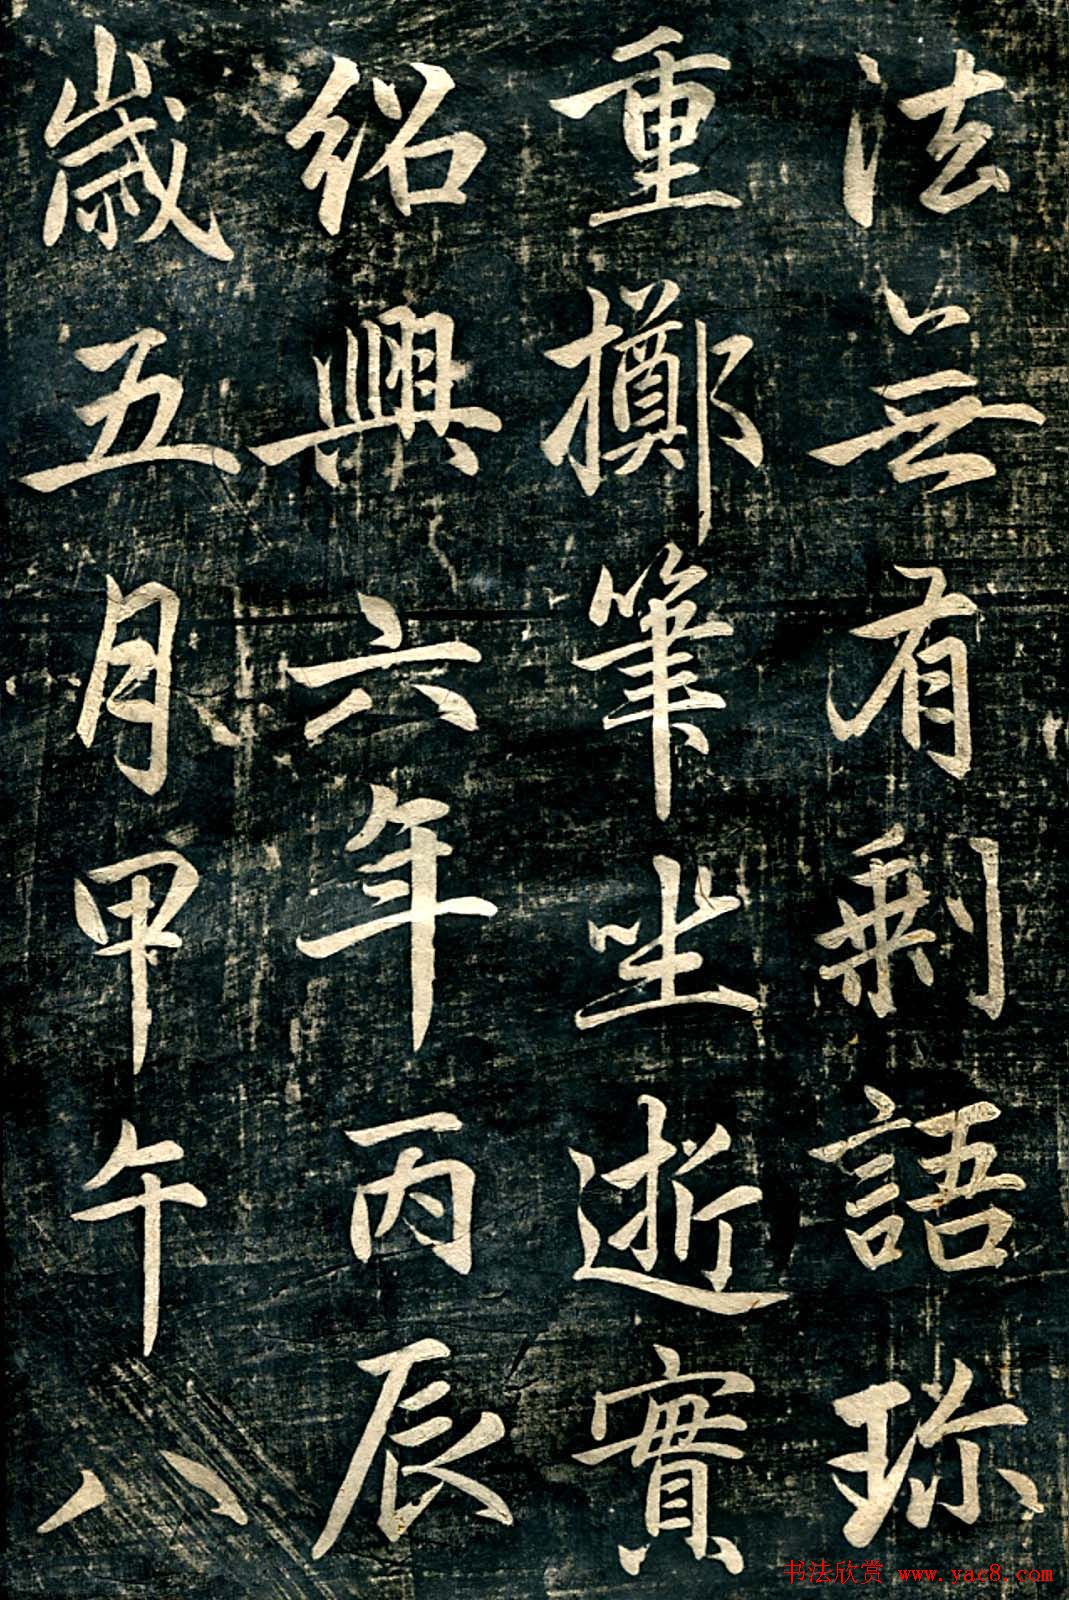 法無有剩語珎
重擲筆坐逝實
紹興六年丙辰
歲五月甲午八
书法欣赏 www.yac8.com